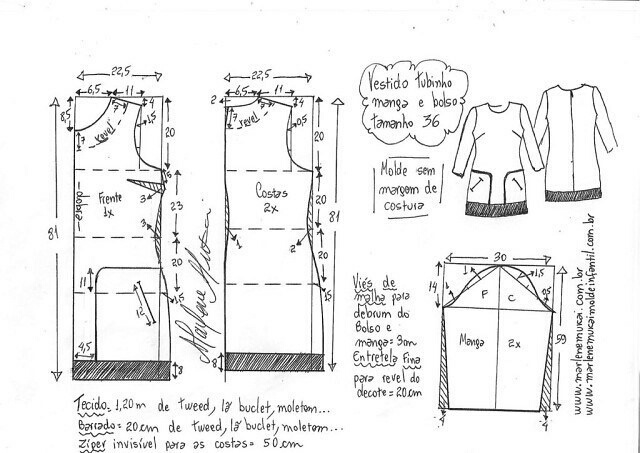 22,5
6,5 11
8,5
7
7
revel
4
1,5
20
81
Frente
1x
dobra
3
3
23
20
11
12
4,5
1,5
8
Marlene Mukai
22,5
6,5 11
2
7
7
revel
4
0,5
20
Costas
2x
1
2
20
20
81
1,5
8
Vestido tubinho
manga e bolso
tamanho 36
Molde sem
margem de
costura
Viés de
malha para
debrum do
Bolso e
manga = 3m
Entretela Fina
para revel do
decote = 20cm
30
14
1
1,5
0,5
F C
Manga 2x
59
4 4
www.marlenemukai.com.br
www.marlenemukaimoldeinfantil.com.br
Tecido= 1,20m de tweed, lã buclet, moletom...
Barrado= 20cm de tweed, lã buclet, moletom...
Zíper invisível para as costas= 50cm